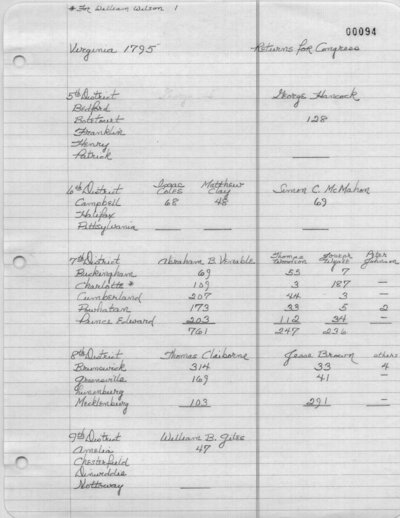 * For William Wilson 1
00094
Virginia 1795 Returns for Congress
5th District George Hancock
Bedford
Botetourt 128
Franklin
Henry
Patrick
6th District Isaac Coles Matthew Clay Simon C. McMahon
Campbell 68 48 69
Halifax
Pittsylvania
7th District Abraham B. Venable Thomas Woodson Joseph Wyatt Peter Johnson
Buckingham 69 55 7 —
Charlotte * 109 3 187 —
Cumberland 207 44 3 —
Powhatan 173 33 5 2
Prince Edward 203 112 34 —
761 247 236
8th District Thomas Claiborne Jesse Brown others
Brunswick 314 33 4
Greensville 169 41 —
Lunenburg
Mecklenburg 103 291 —
9th District William B. Giles
Amelia 47
Chesterfield
Dinwiddie
Nottoway